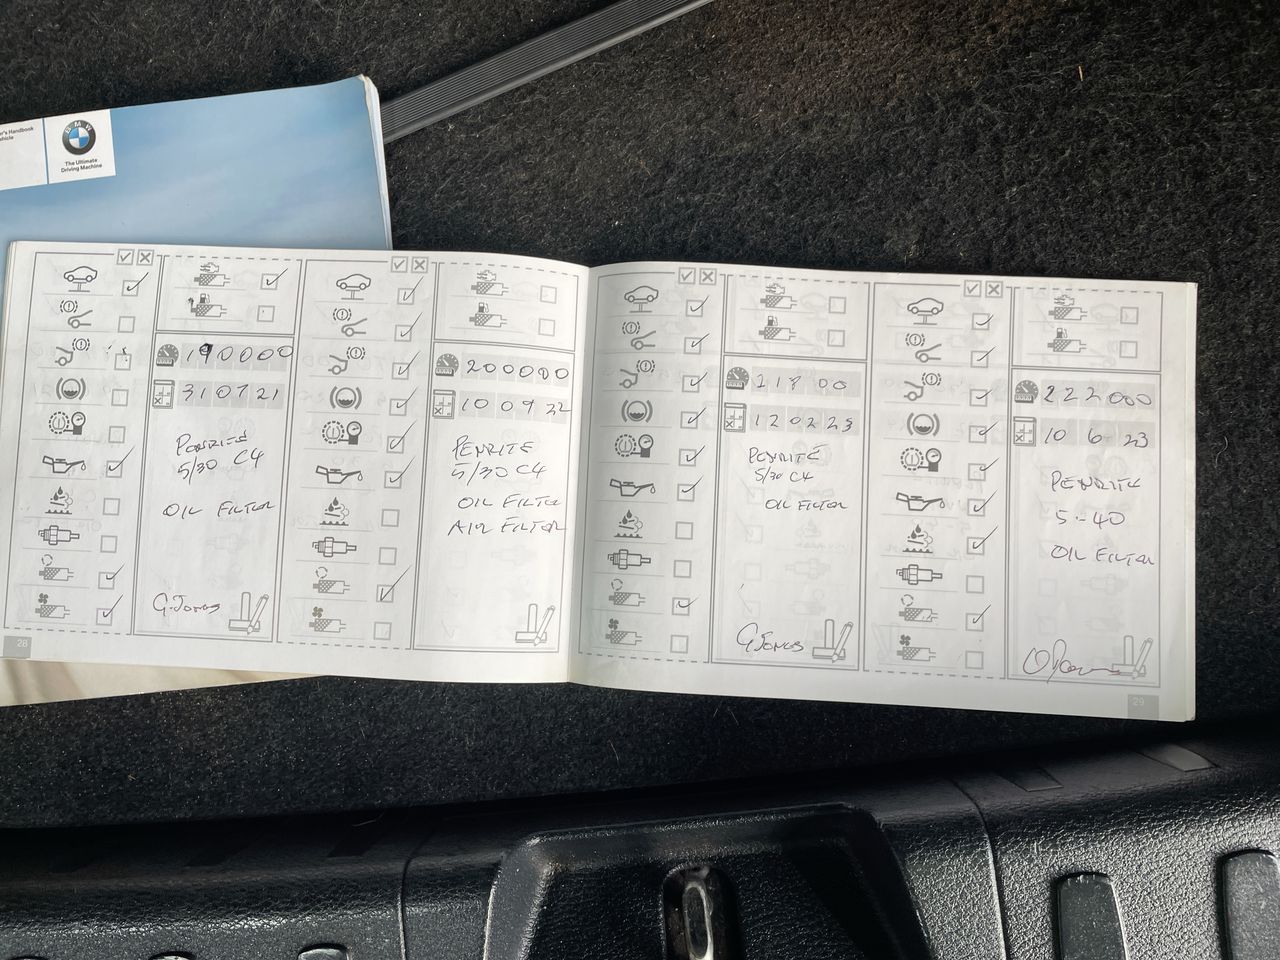 er's Handbook
ehicle
BMW
The Ultimate
Driving Machine
190000
310721
PENRITE
5/30 C4
OIL FILTER
G. Jones
28
200000
10 09 22
PENRITE
5/30 C4
OIL FILTER
AIR FILTER
218 00
120223
PENRITE
5/30 C4
OIL FILTER
G Jones
222000
10 6 23
PENRITE
5-40
OIL FILTER
29